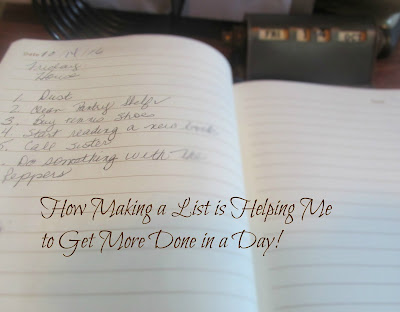 FRI
Friday
1. Dust
2. Clean Pantry Shelf
3. Buy tennis shoe
4. Start reading a new book
5. Call sister
. Do something with the
Peppers
How Making a List is Helping Me
to Get More Done in a Day!